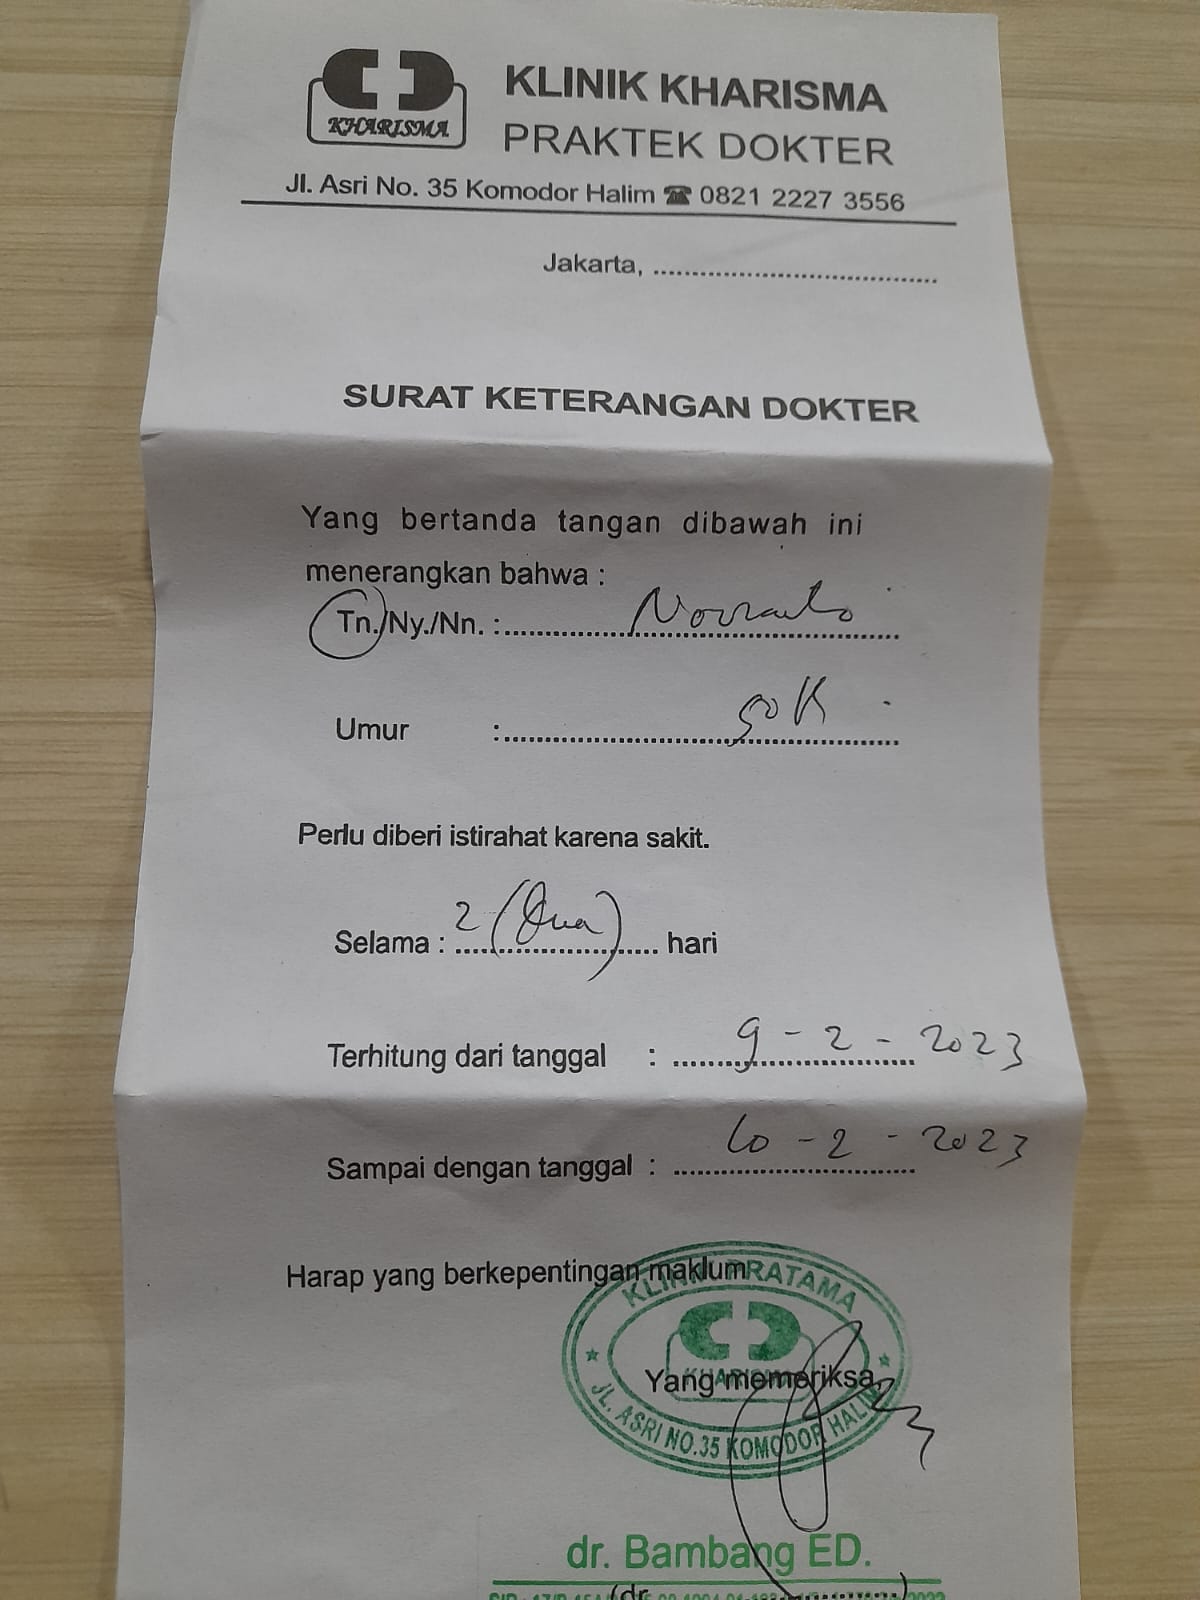 KHARISMA
KLINIK KHARISMA
PRAKTEK DOKTER
Jl. Asri No. 35 Komodor Halim ☎ 0821 2227 3556
Jakarta, ........................................
SURAT KETERANGAN DOKTER
Yang bertanda tangan dibawah ini
menerangkan bahwa :
Tn./Ny./Nn. :
Umur : 50
Perlu diberi istirahat karena sakit.
Selama : 2 (Dua) hari
Terhitung dari tanggal : 9 - 2 - 2023
Sampai dengan tanggal : 10 - 2 - 2023
Harap yang berkepentingan maklum
KLINIK PRATAMA
KHARISMA
Yang memeriksa,
JL. ASRI NO.35 KOMODOR HALIM
dr. Bambang ED.
(dr